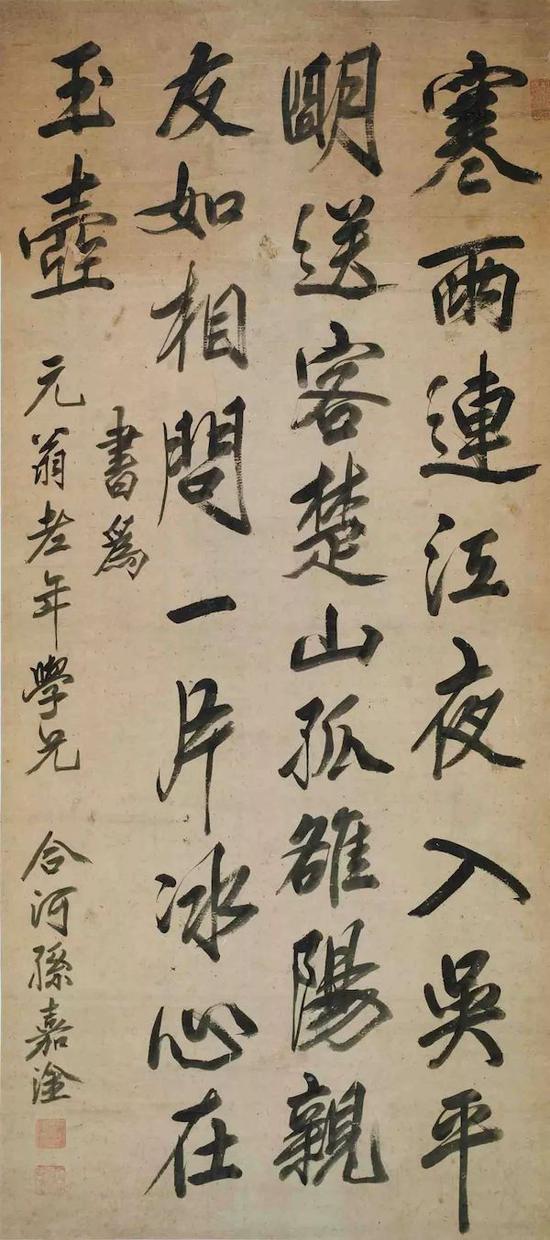 寒雨連江夜入吳平
明送客楚山孤雒陽親
友如相問一片冰心在
玉壺
書為
元翁老年學兄
合河孫嘉淦